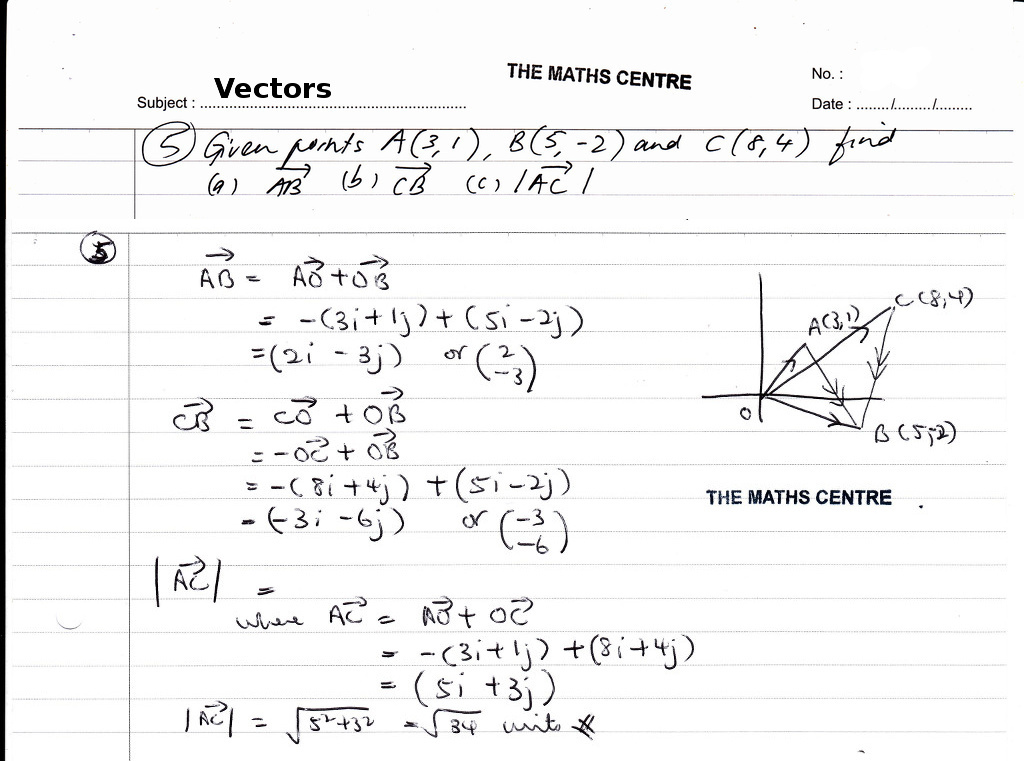 THE MATHS CENTRE
No. :
Subject : Vectors
Date : ......../........./.........
(5) Given points A(3,1), B(5,-2) and C(8,4) find
(a) →AB (b) →CB (c) |→AC|
(5)
→AB = →AO + →OB
= -(3i+1j) + (5i-2j)
= (2i - 3j) or (2 -3)
→CB = →CO + →OB
= -→OC + →OB
= -(8i+4j) + (5i-2j)
= (-3i -6j) or (-3 -6)
|→AC| =
where →AC = →AO + →OC
= -(3i+1j) + (8i+4j)
= (5i +3j)
|→AC| = √5²+3² = √34 units
C(8,4)
A(3,1)
O
B(5,-2)
THE MATHS CENTRE